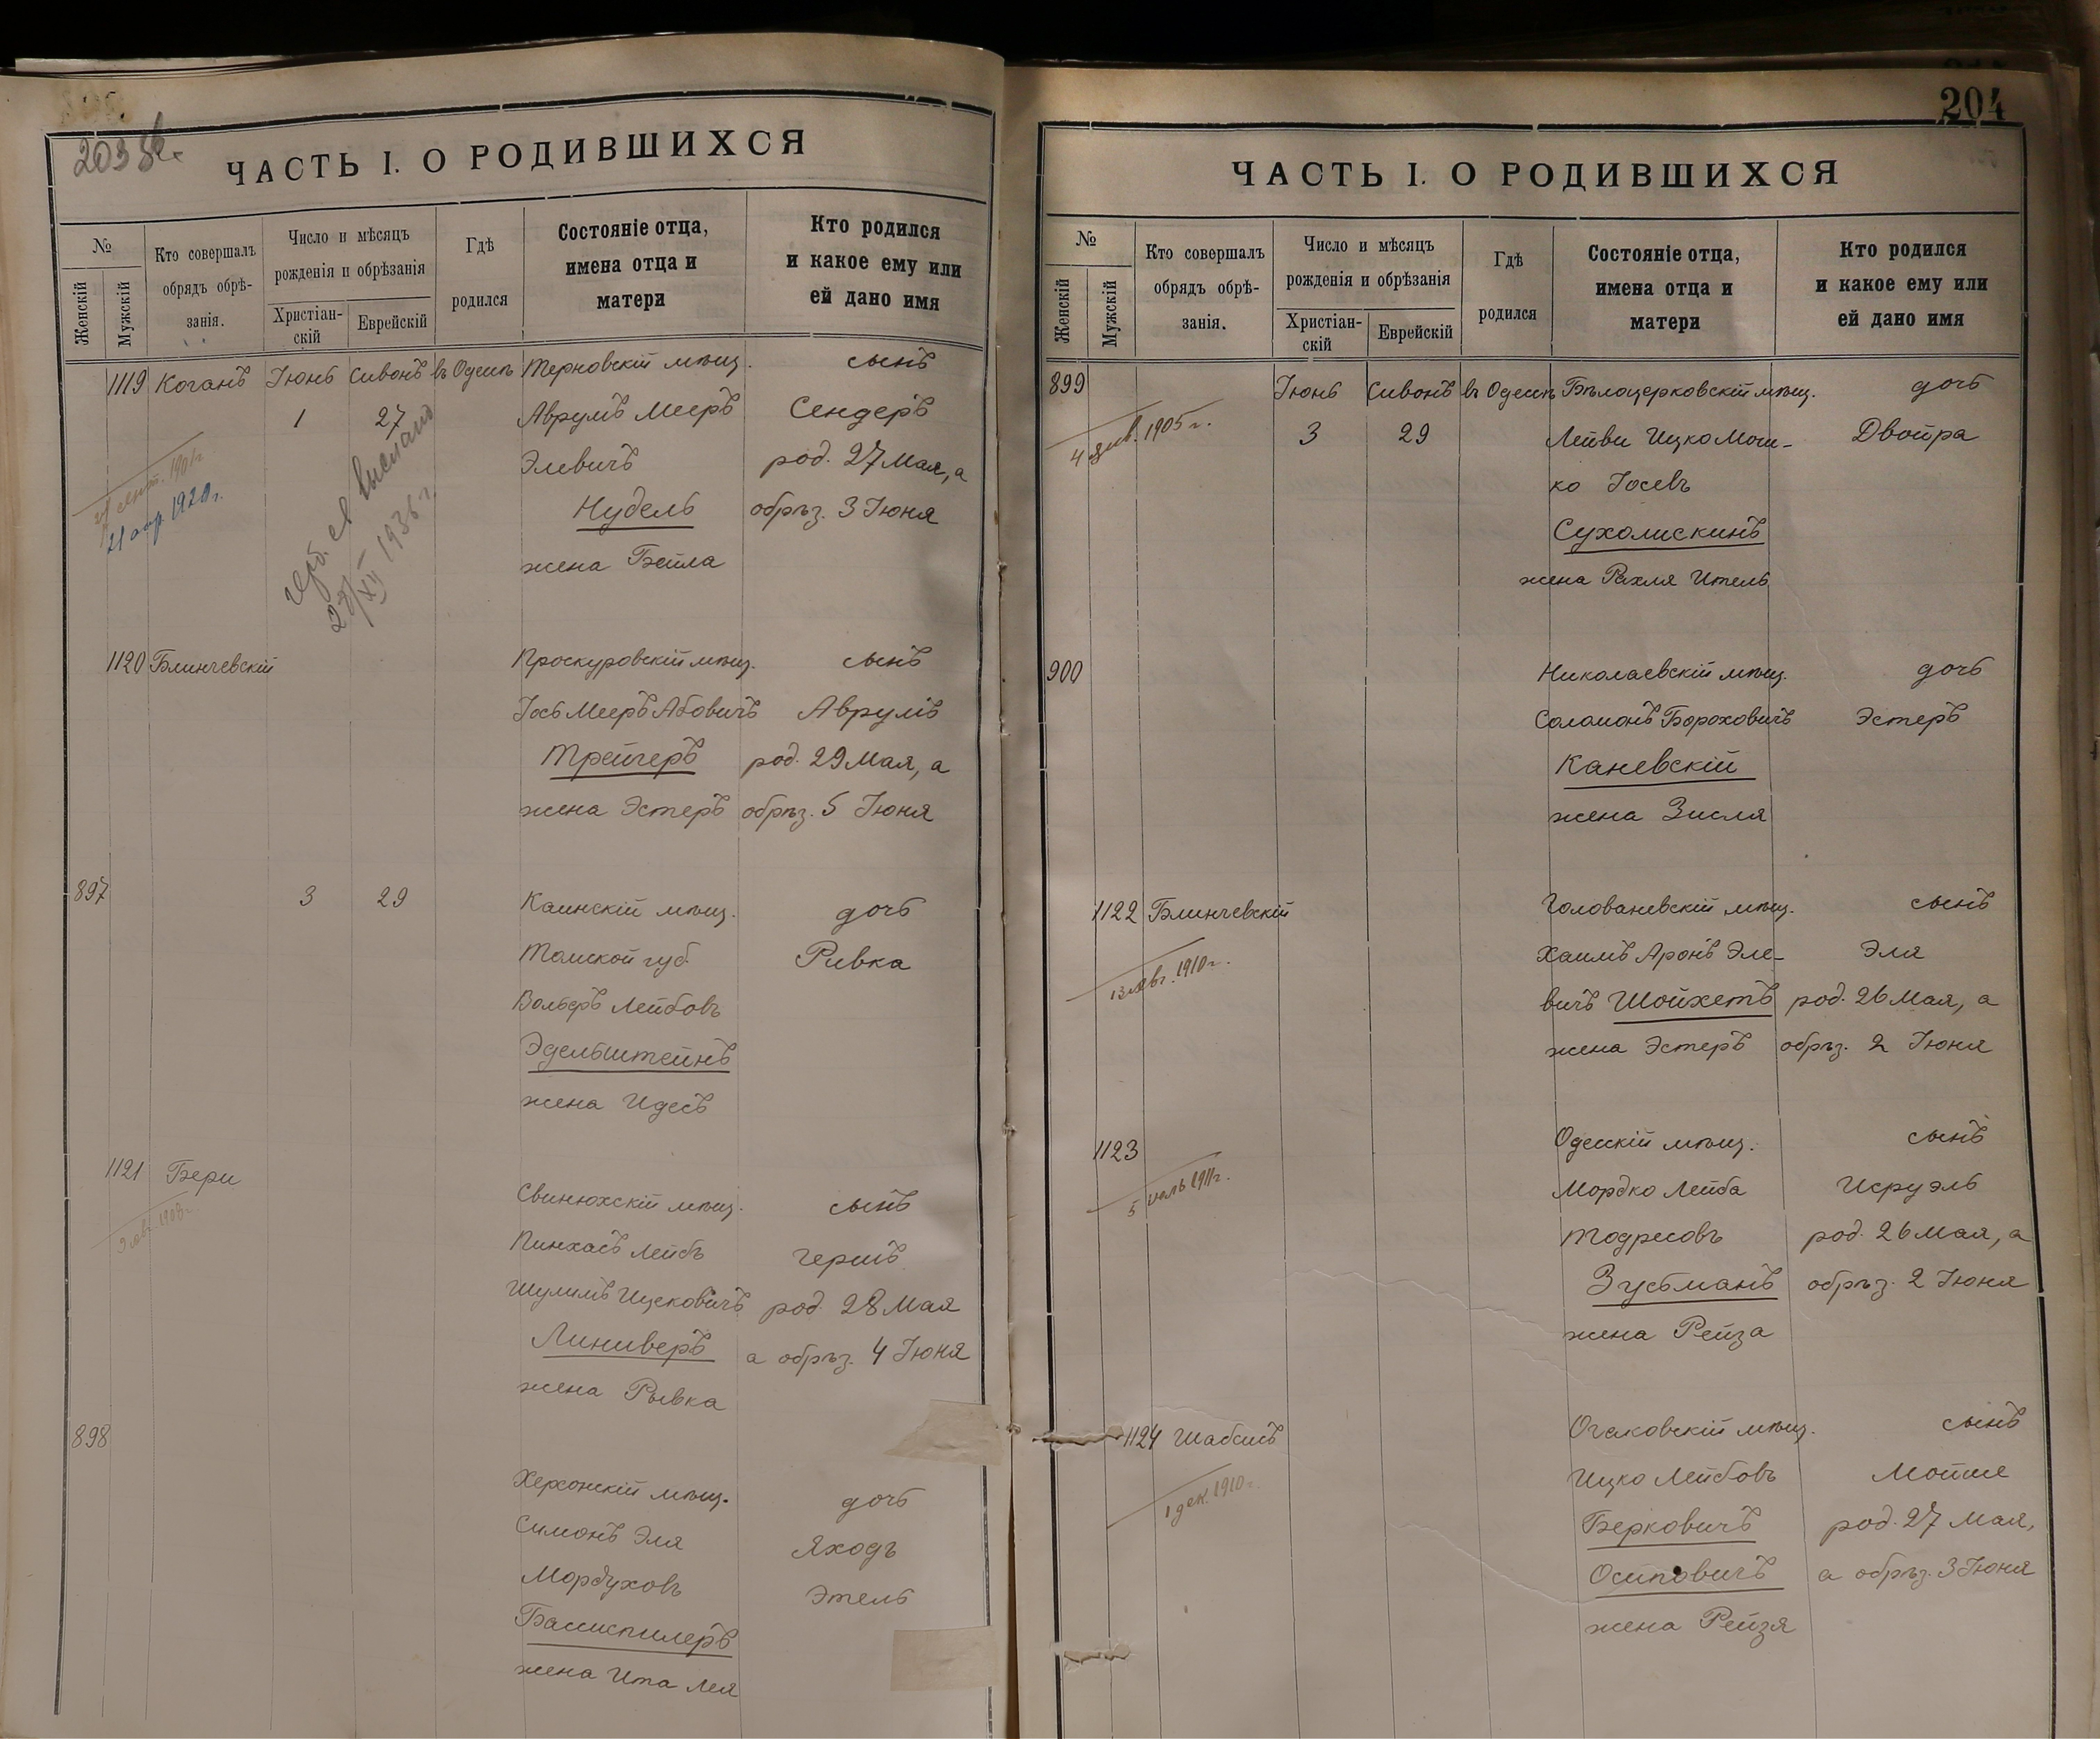 203
ЧАСТЬ I. О РОДИВШИХСЯ
№
Женскій
Мужскій
Кто совершалъ
обрядъ обрѣ-
занія.
Число и мѣсяцъ
рожденія и обрѣзанія
Христіан-
скій
Еврейскій
Гдѣ
родился
Состояніе отца,
имена отца и
матери
Кто родился
и какое ему или
ей дано имя
1119 Коганъ Іюнь Сивонъ въ Одессѣ Терновскій мѣщ. сынъ
1 27 Аврумъ Мееръ Сендеръ
Элевичъ род. 27 Мая, а
Нудель обрѣз. 3 Іюня
жена Бейла
сент. 1901 г.
21 апр. 1920 г.
герб. св выслано
27/XII 1936 г.
1120 Блинчевскій Проскуровскій мѣщ. сынъ
Іось Мееръ Абовичъ Аврумъ
Трейгеръ род. 29 Мая, а
жена Эстеръ обрѣз. 5 Іюня
897 3 29 Каинскій мѣщ. дочь
Томской губ. Ривка
Вольеръ Лейбовъ
Эдельштейнъ
жена Идесъ
1121 Бери Свинюхскій мѣщ. сынъ
авг. 1908 г.
Пинхасъ Лейбъ Гершъ
Шулимъ Ицковичъ род. 28 Мая
Линиверъ а обрѣз. 4 Іюня
жена Рывка
898
Херсонскій мѣщ. дочь
Симонъ Эля Яходъ
Мордуховъ Этель
Басиспилеръ
жена Ита Лея
204
ЧАСТЬ I. О РОДИВШИХСЯ
№
Женскій
Мужскій
Кто совершалъ
обрядъ обрѣ-
занія.
Число и мѣсяцъ
рожденія и обрѣзанія
Христіан-
скій
Еврейскій
Гдѣ
родился
Состояніе отца,
имена отца и
матери
Кто родился
и какое ему или
ей дано имя
899 Іюнь Сивонъ въ Одессѣ Бѣлоцерковскій мѣщ. дочь
4 янв. 1905 г.
3 29 Лейви Ицко Мош- Двойра
ко Іосевъ
Сухолискинъ
жена Рахля Итель
900 Николаевскій мѣщ. дочь
Соломонъ Бороховичъ Эстеръ
Каневскій
жена Зисля
1122 Блинчевскій Голованевскій мѣщ. сынъ
13 авг. 1910 г.
Хаимъ Аронъ Эле- Эля
вичъ Шойхетъ род. 26 Мая, а
жена Эстеръ обрѣз. 2 Іюня
1123 Одесскій мѣщ. сынъ
5 іюль 1911 г.
Мордко Лейба Исруэль
Тодресовъ род. 26 Мая, а
Зусьманъ обрѣз. 2 Іюня
жена Рейза
1124 Шабсисъ Очаковскій мѣщ. сынъ
1 дек. 1910 г.
Ицко Лейбовъ Мойше
Берковичъ род. 27 Мая,
Осиповичъ а обрѣз. 3 Іюня
жена Рейзя